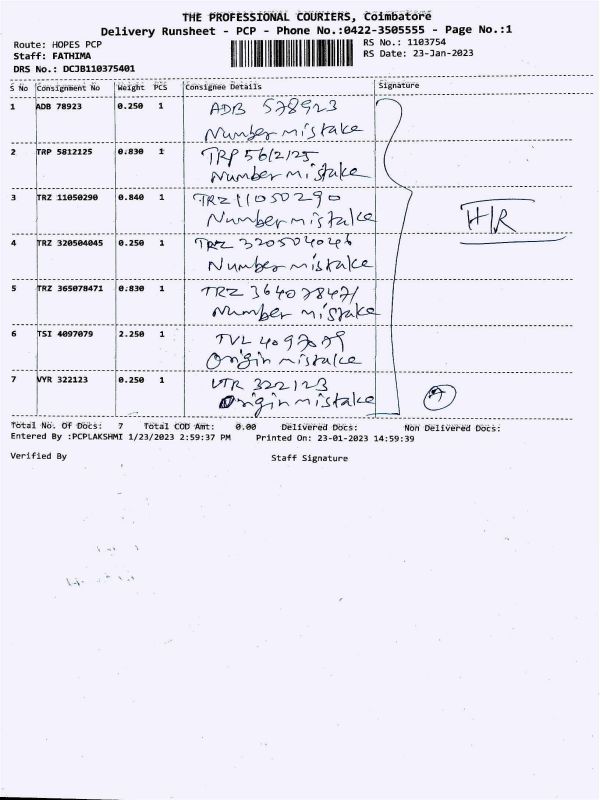 THE PROFESSIONAL COURIERS, Coimbatore
Delivery Runsheet - PCP - Phone No.:0422-3505555 - Page No.:1
Route: HOPES PCP
RS No.: 1103754
Staff: FATHIMA
RS Date: 23-Jan-2023
DRS No.: DCJB110375401
S No Consignment No Weight PCS Consignee Details Signature
1 ADB 78923 0.250 1 ADB 578923
Number mistake
2 TRP 5812125 0.830 1 TRP 5612125
Number mistake
3 TRZ 11050290 0.840 1 TRZ 11050290
Number mistake
H/R
4 TRZ 320504045 0.250 1 TRZ 320504046
Number mistake
5 TRZ 365078471 0.830 1 TRZ 364078471
Number mistake
6 TSI 4097079 2.250 1 TVL 4097079
Origin mistake
7 VYR 322123 0.250 1 VTR 322123
Origin mistake
Total No. Of Docs: 7 Total COD Amt: 0.00 Delivered Docs: Non Delivered Docs:
Entered By :PCPLAKSHMI 1/23/2023 2:59:37 PM Printed On: 23-01-2023 14:59:39
Verified By Staff Signature